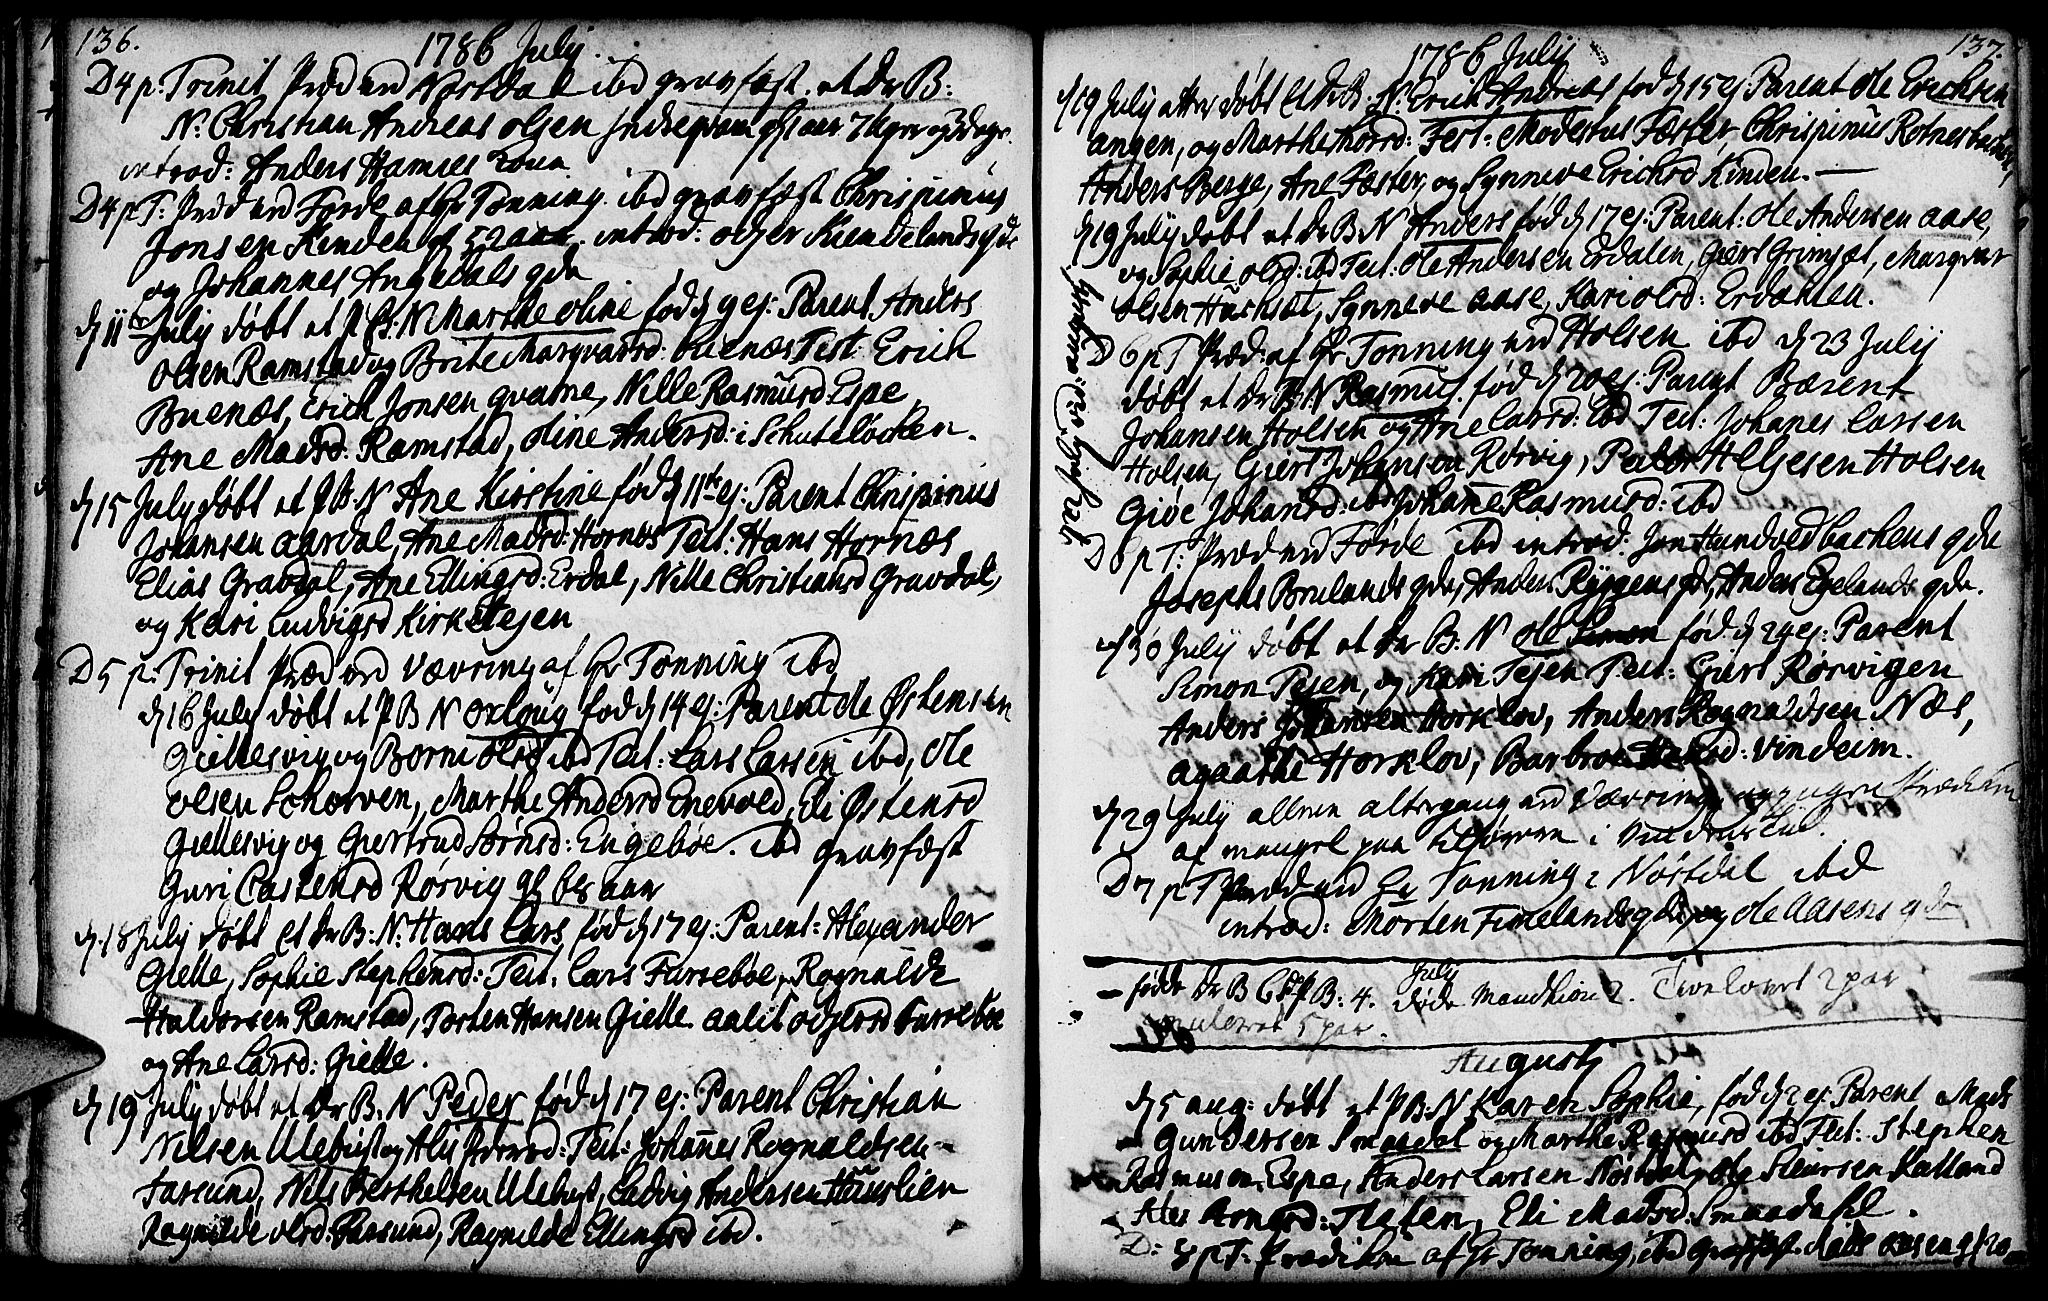 136.
1786 July.
D 4 p: Trinit Præd ved Nørstdal ibd gravfæst. et Dr B:
N: Christian Andreas Olsen gl aar 7 uger og 3 dage.
introd: Anders Hamses kona
D 4 p T: Præd ved Førde af Hr Tonning ibd gravfæst Chrispinus
Jonsen Kinden gl 52 aar. introd: Kindelands qde
og Johannes Angedals qde
d 11te July døbt et P B: N Marthe Oline fød d 9 ej: Parent Anders
Olsen Ramstad og Brite Marqvardsd: Buenæs Test: Erich
Buenæs, Erich Jonsen qvame, Nille Rasmusd Espe,
Ane Madsd: Ramstad, Oline Andersd: i Schuteløcken.
d 15 July døbt et P B: N Ane Kirstine fød d 11te ej: Parent Chrispinus
Johansen Aardal, Ane Madsd: Hornæs Test: Hans Hornæs
Elias Gravdal, Ane Ellingsd: Erdal, Nille Christiansd Gravdal,
og Kari Ludvigsd Kirketejen
D 5 p: Trinit Præd ved Vævring af Hr Tonning ibd
d 16 July døbt et P B N Oxløug fød d 14 ej: Parent Ole Østensen
Giellesvig og Borni Olsd ibd Test: Lars Larsen ibd, Ole
Olsen Schorven, Marthe Andersd Enevold, Eli Østensd
Giellesvig og Giertrud Sørnsd: Engebøe. ibd gravfæst
Guri Castensd Rørvig gl 68 aar
d. 18 July døbt et Dr B: N: Hans Lars fød d 17 ej: Parent: Alexander
Gielle, Sophie Stephensd: Test: Lars Farsebøe, Rognalde
Haldorsen Ramstad, Torsten Hansen Gielle Aalit Farsebøe
og Ane Larsd: Gielle.
d 19 July døbt et Dr B: N Peder fød d 17 ej: Parent Christian
Nilsen Ulehust og Alis Pedersd: Test: Johannes Rognaldsen
Farsund, Nils Berthelsen Ulehust, Ludvig Andersen Huuslien
Ragnilde Olsd: Farsund, Ragnilde Ellingsd ibd.
137.
1786 July
d 19 July døbt et Dr B: N: Erich Andreas fød d 15 ej: Parent Ole Erichsen
angen, og Marthe Test: Modestus Fæster, Chrispinus
Anders Berge, Ane Fæster, og Synneve Erichsd Kinden.
d 19 July døbt et Dr B: N Anders fød d 17 ej: Parent: Ole Andersen Aase,
og Sophie Olsd: ibd Test: Ole Andersen Erdalen, Giert Grimset, Marqvar
Olsen Synneve Aase, Kari Olsd: Erdahlen.
D 6 p T Præd: af Hr Tonning ved Holsen ibd d 23 July
døbt et Dr B N Rasmus. fød d 20 ej: Parent Bærent
Johansen Holsen og Ane Larsd: ibd Test: Johanes Larsen
Holsen, Giert Johansen Rørvig, Peder Helgesen Holsen
Giøe Johansd: ibd Johanne Rasmusd: ibd
D 6 p T: Præd ved Førde ibd introd: Jon Hundvedbachens qde
Josephs Brulands qde, Anders Ryggens qde, Anders Egelands qde.
d 30 July døbt et Dr B: N Ole Simon fød d 24 ej: Parent
Simon Tejen, og Kari Tejen Test: Giert Rørvigen
Anders Johansen Horsklov, Anders Rognaldsen Næs,
Agaathe Horsklov, Barbroe Vindeim.
d 29 July alleen altergang ved Vævring, og ingen Prædiken
af mangel paa tilhørere i
D 7 p T Præd ved Hr Tonning i Nøstdal ibd
introd: Morten Fimelands qde, og Ole Aasens qde
July
fødde Dr B 6 P B: 4. døde Mandkion 2. Trolovet 2 par
5 par.
Augustj
d 5 aug: døbt et P B: N Karen Sophie, fød d 2 ej: Parent Mads
Gundersen Smaadal og Marthe Rasmusd ibd Test: Stephen
Rasmusen Espe, Anders Larsen Nøstdal, Ole Siursen Kalland
Ales Arnesd: Flaten, Eli Madsd: Smaadahl.
D: 8 p T: Prædiken af Hr Tonning, ibd Gravfæst Mads